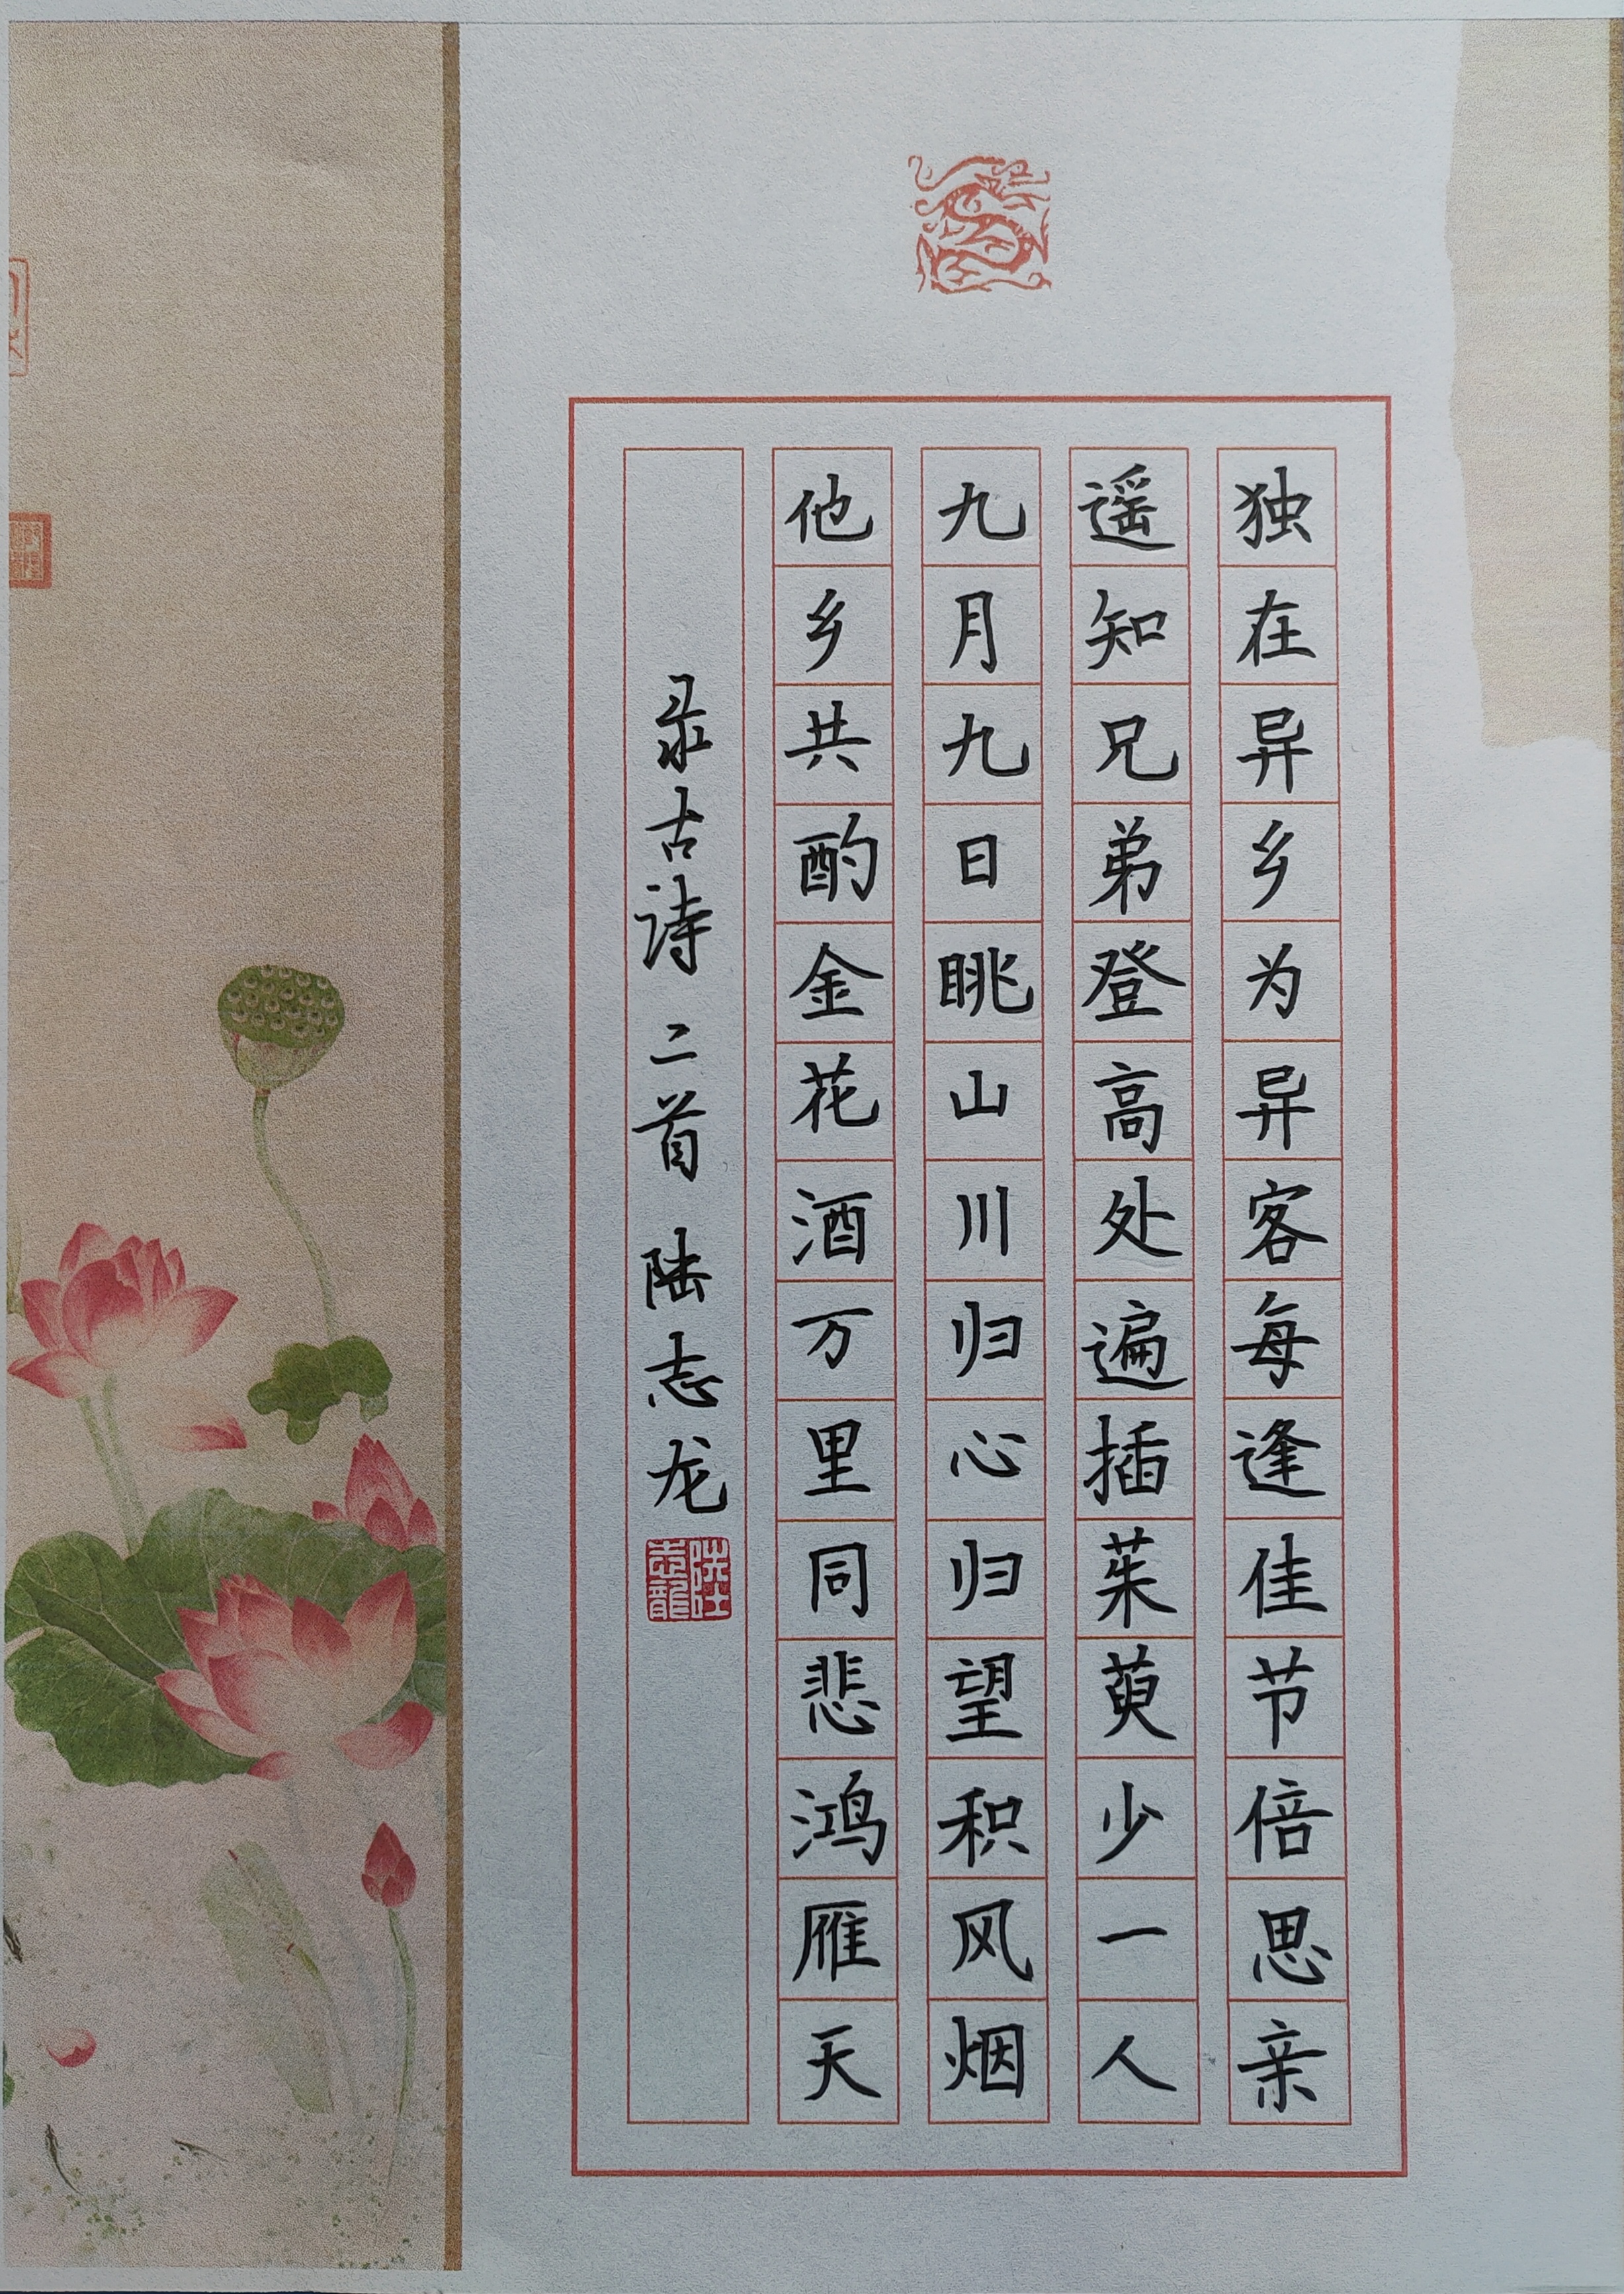 独在异乡为异客每逢佳节倍思亲
遥知兄弟登高处遍插茱萸少一人
九月九日眺山川归心归望积风烟
他乡共酌金花酒万里同悲鸿雁天
录古诗二首 陆志龙
陆志龍